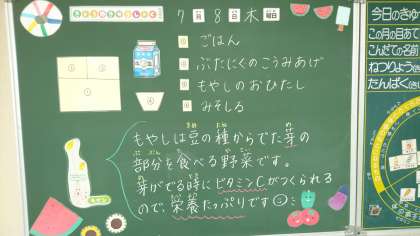 きょうのきゅうしょくこんだて
7月8日木曜日
ごはん
ぶたにくのこうみあげ
もやしのおひたし
みそしる
もやしは豆の種からでた芽の
部分を食べる野菜です。
芽がでる時にビタミンCがつくられる
ので、栄養たっぷりです
今日のきゅ
この月の目あて
こんだての名前
ねつりょう
たんぱく